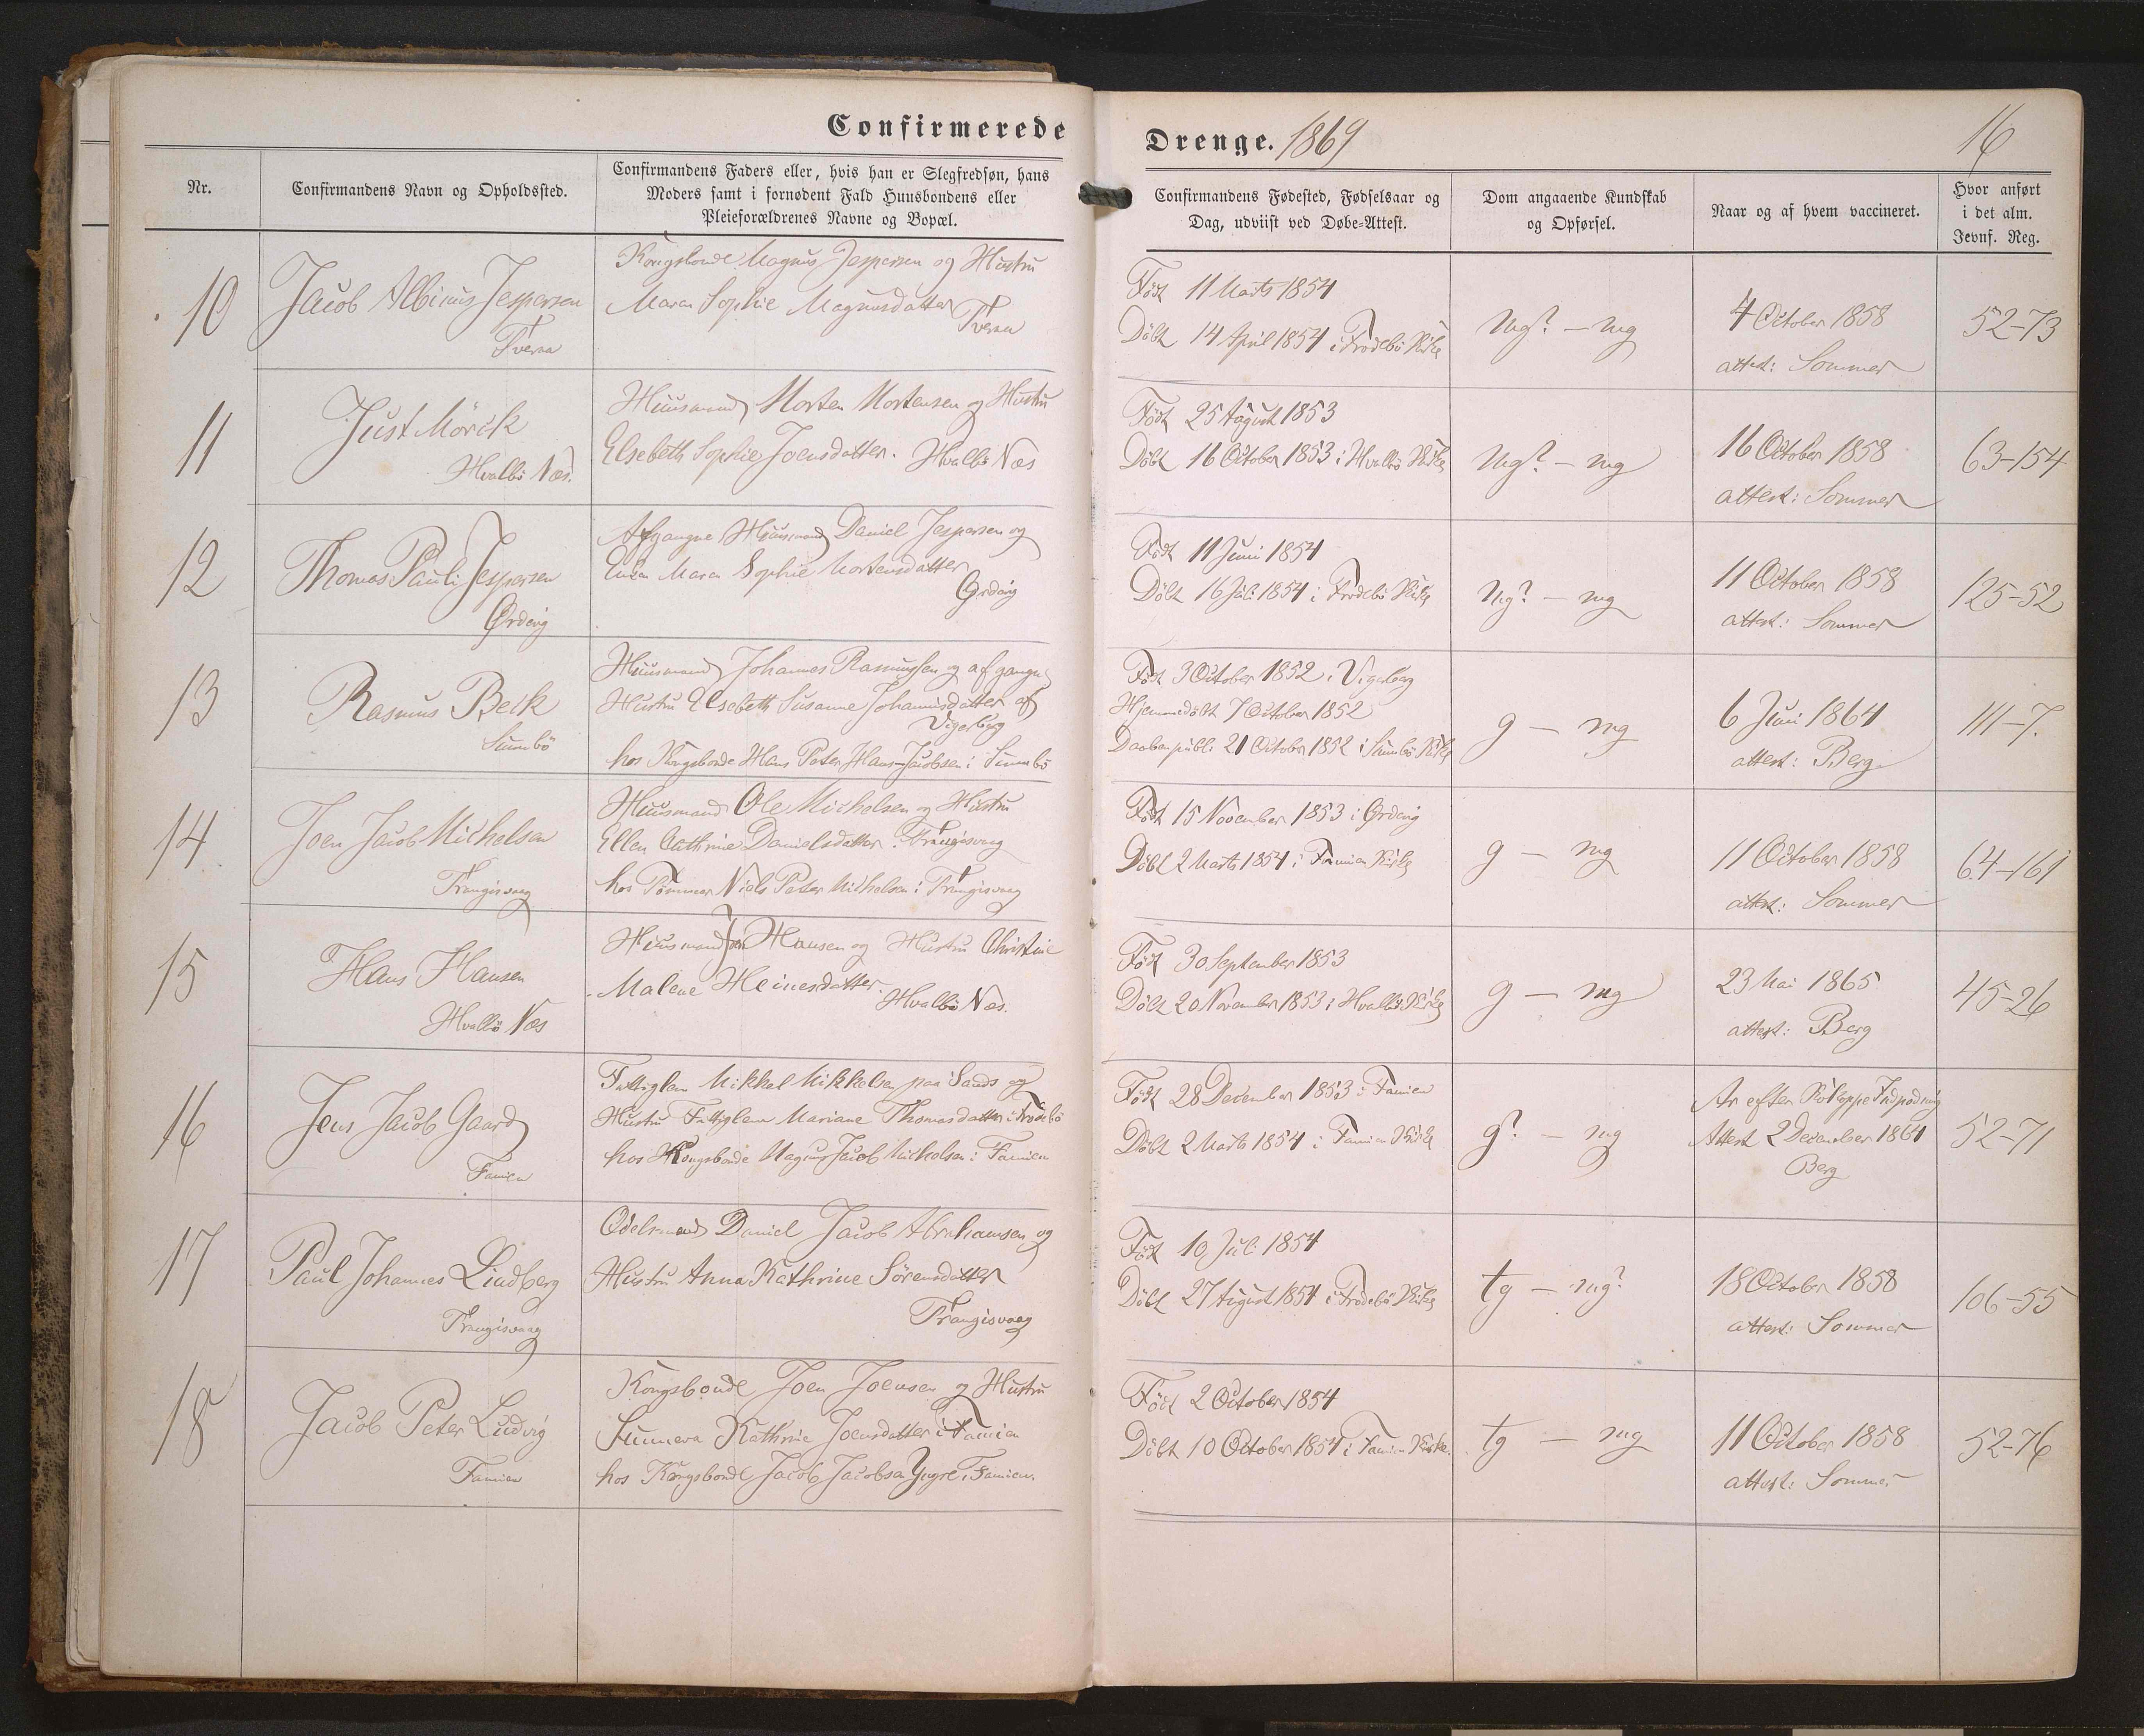 Confirmerede
Drenge. 1869
16
Nr.
Confirmandens Navn og Opholdssted.
Confirmandens Faders eller, hvis han er Slegfredsøn, hans
Moders samt i fornødent Fald Huusbondens eller
Pleieforældrenes Navne og Bopæl.
Confirmandens Fødested, Fødselsaar og
Dag, udviist ved Døbe-Attest.
Dom angaaende Kundskab
og Opførsel.
Naar og af hvem vaccineret.
Hvor anført
i det alm.
Jevnf. Reg.
10
Jacob Albinus Jespersen
Tveraa
Kongsbonde Magnus Jespersen og Hustru
Maren Sophie Magnusdatter
Tveraa
Født 11 Marts 1854
Döbt 14 April 1854 i Frodebö Kirke
mg? – mg
4 October 1858
attest: Sommer
52–73
11
Just Mörck
Hvalbö Næs.
Huusmand Morten Mortensen og Hustru
Elsebeth Sophie Joensdatter. Hvalbö Næs
Født 25 August 1853
Döbt 16 October 1853 i Hvalbö Kirke
mg? – mg
16 October 1858
attest: Sommer
63–154
12
Thomas Pauli Jespersen
Ördevig
Afgangne Huusmand Daniel Jespersen og
Enken Maren Sophie Mortensdatter
Ördevig
Født 11 Juni 1854
Döbt 16 Juli 1854 i Frodebö Kirke
mg? – mg
11 October 1858
attest: Sommer
125–52
13
Rasmus Beck
Sumbö
Huusmand Johannes Rasmussen og afgangne
Hustru Elsebeth Susanne Johannisdatter af
Vigerbyg
hos Kongsbonde Hans Peter Hans-Jacobsen i Sumbö
Født 3 October 1852 i Vigerbyg
Hjemmedöbt 7 October 1852
Daaben publ: 21 October 1852 i Sumbö Kirke
g – mg
6 Juni 1864
attest: Berg
111–7.
14
Joen Jacob Michelsen
Trangisvaag
Huusmand Ole Michelsen og Hustru
Ellen Cathrine Danielsdatter. Trangisvaag
hos Tömmer Niels Peter Michelsen i Trangisvaag
Født 15 November 1853 i Ördevig
Döbt 2 Marts 1854 i Famien Kirke
g – mg
11 October 1858
attest: Sommer
64–161
15
Hans Hansen
Hvalbö Næs
Huusmand Hansen og Hustru Christine
Malene Heinesdatter
Hvalbö Næs.
Født 30 September 1853
Döbt 20 November 1853 i Hvalbö Kirke
g – mg
23 Mai 1865
attest: Berg
45–26
16
Jens Jacob Gaard
Famien
Fattiglem Mikkel Mikkelsen paa Sands og
Hustru Fattiglem Mariane Thomasdatter i Frodebö
hos Kongsbonde Magnus Jacob Michelsen i Famien
Født 28 December 1853 i Famien
Döbt 2 Marts 1854 i Famien Kirke
g? – mg
Ar efter Kokoppe Indpodning
Attest 2 December 1861
Berg
52–71
17
Paul Johannes Lindberg
Trangisvaag
Odelsmand Daniel Jacob Abrahamsen og
Hustru Anna Kathrine Sörensdatter
Trangisvaag
Født 10 Juli 1854
Döbt 27 August 1854 i Frodebö Kirke
tg – mg?
18 October 1858
attest: Sommer
106–55
18
Jacob Peter Ludvig
Famien
Kongsbonde Joen Joensen og Hustru
Sunneva Kathrine Joensdatter i Famien
hos Kongsbonde Jacob Jacobsen Yngre, Famien.
Født 2 October 1854
Döbt 10 October 1854 i Famien Kirke.
tg – mg
11 October 1858
attest: Sommer
52–76